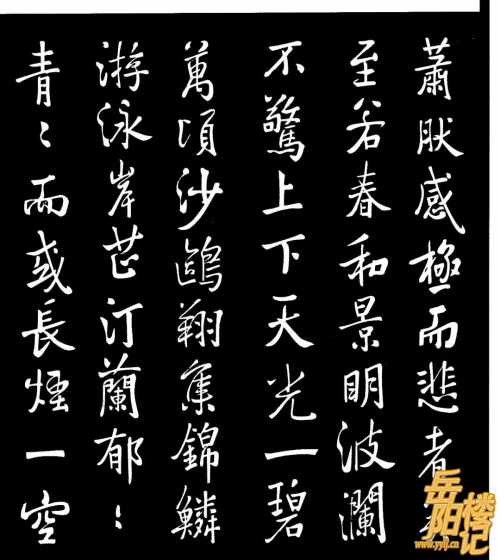 蕭肰感極而悲者
至若春和景明波瀾
不驚上下天光一碧
萬頃沙鷗翔集錦鱗
游泳岸芷汀蘭郁〻
青〻而或長煙一空
岳阳楼记
www.yylj.cn